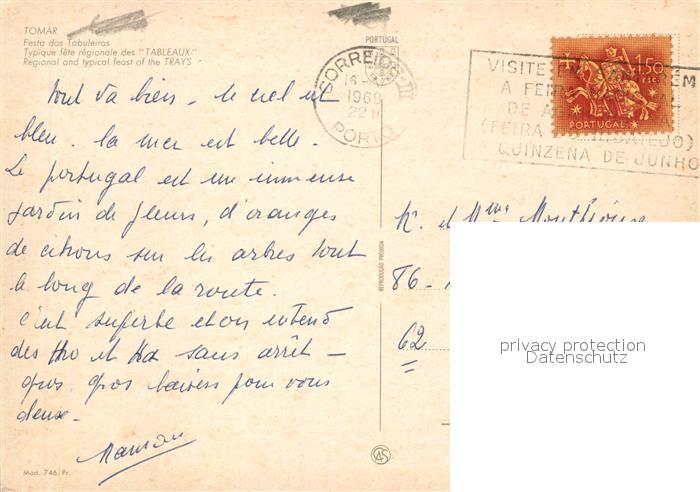 TOMAR
Festa dos Tabuleiros
Typique fête régionale des "TABLEAUX"
Regional and typical feast of the TRAYS
PORTUGAL
CORREIOS
16
1969
22 H
PORTO
1$50
PORTUGAL
VISITE EM SANTARÉM
A FEIRA
DE A
(FEIRA DO RIBATEJO)
QUINZENA DE JUNHO
tout va bien - le ciel est
bleu. la mer est belle.
Le portugal est un immense
jardin de fleurs, d'oranges
de citrons sur les arbres tout
le long de la route.
c'est superbe et on entend
des Ho et Ha sans arrêt -
gros gros baisers pour vous
deux -
Maman
REPRODUÇÃO PROIBIDA
M. et Mme
86 -
62
privacy protection
Datenschutz
Mod. 746/Pr.